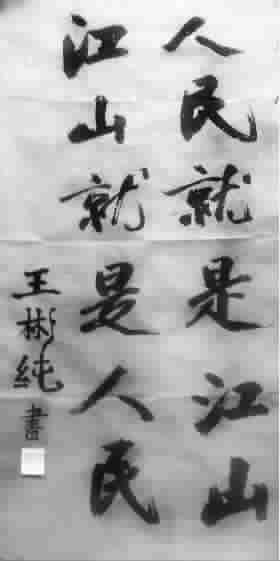 人民就是江山
江山就是人民
王彬纯书